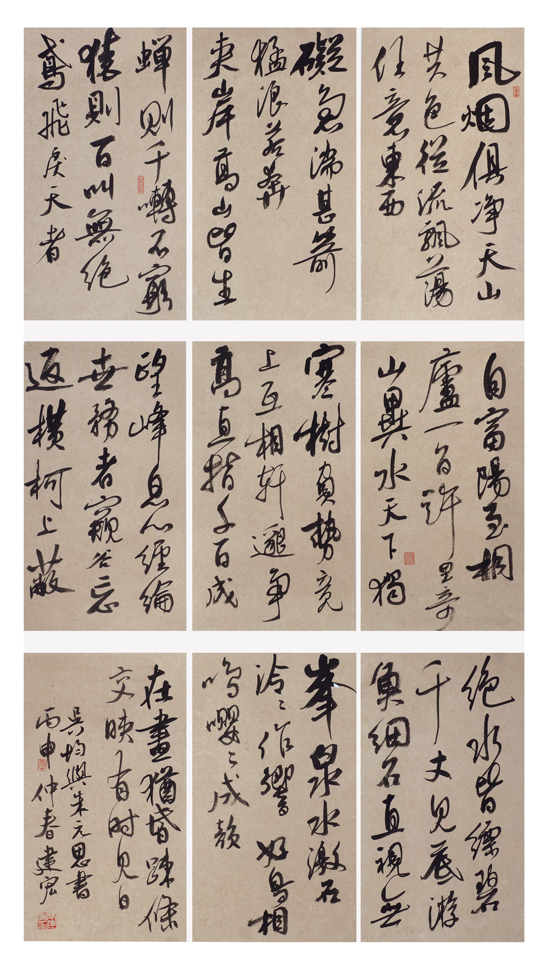 风烟俱净天山
共色從流飄蕩
任意東西
自富陽至桐
廬一百許里奇
山異水天下獨
絶水皆縹碧
千丈見底游
魚細石直視無
礙急湍甚箭
猛浪若奔
夾岸高山皆生
寒樹負勢竞
上互相軒邈争
高直指千百成
峯泉水激石
泠〻作響好鳥相
鳴嚶〻成韻
蝉則千囀不窮
猿則百叫無绝
鳶飛戾天者
望峰息心經綸
世務者窺谷忘
返横柯上蔽
在晝猶昏疎條
交映有時見日
吴均與朱元思書
丙申仲春建宏